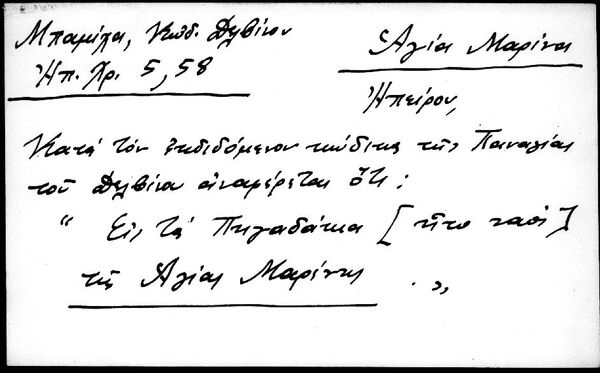 Μπαμίχα, Κώδ. Δελβίνου
Ἠπ. Χρ. 5, 58
Ἁγία Μαρίνα
Ἠπείρου,
Κατά τόν ἐκδιδόμενον κώδικα τῆς Παναγίας
τοῦ Δελβίνου ἀναφέρεται ὅτι:
“ Εἰς τά Πηγαδάκια [ ἦτο ναός ]
τῆς Ἁγίας Μαρίνης . „